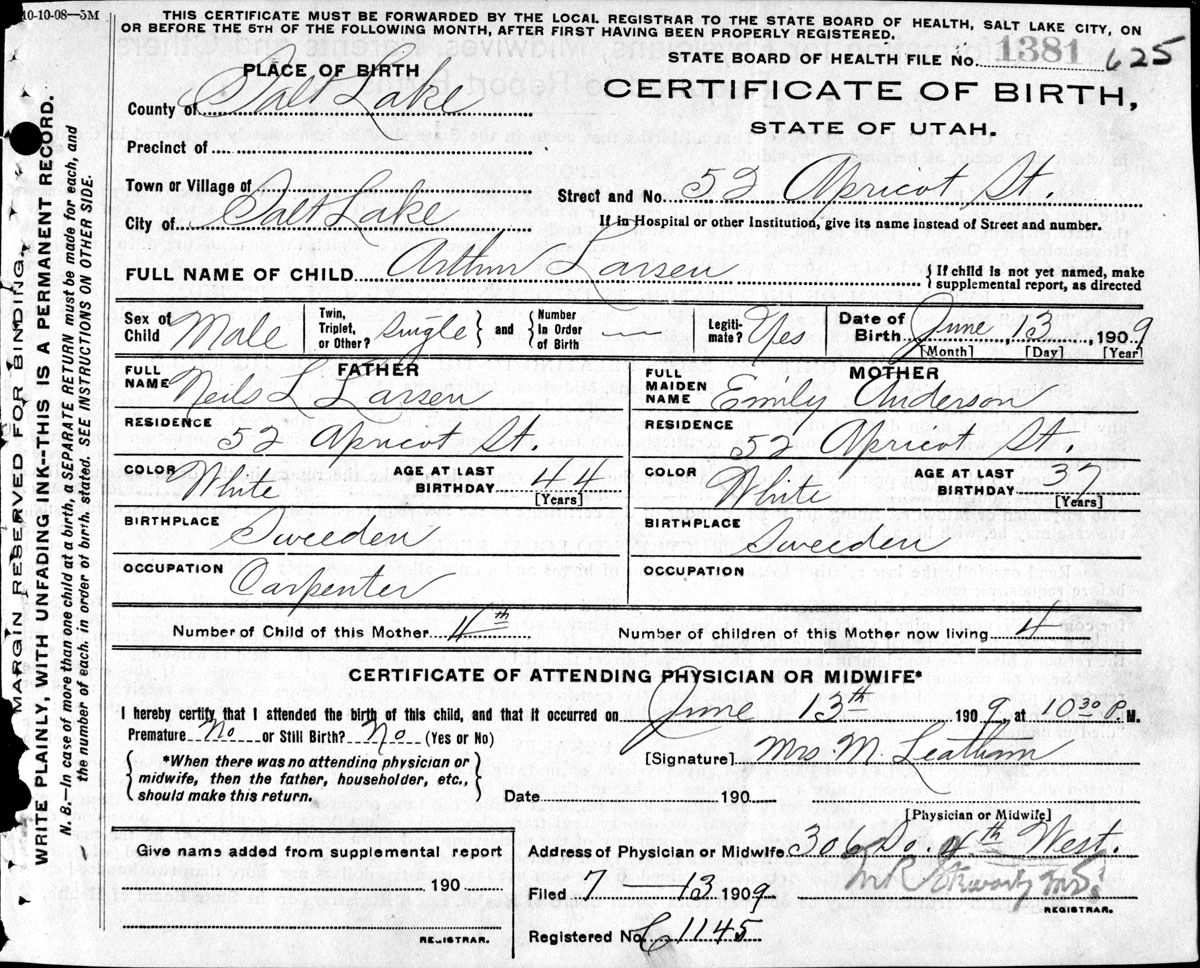 10-10-08—3M
THIS CERTIFICATE MUST BE FORWARDED BY THE LOCAL REGISTRAR TO THE STATE BOARD OF HEALTH, SALT LAKE CITY, ON
OR BEFORE THE 5TH OF THE FOLLOWING MONTH, AFTER FIRST HAVING BEEN PROPERLY REGISTERED.
STATE BOARD OF HEALTH FILE No. 1381 625
PLACE OF BIRTH
CERTIFICATE OF BIRTH,
STATE OF UTAH.
County of Salt Lake
Precinct of
Town or Village of
Street and No. 52 Apricot St.
City of Salt Lake
If in Hospital or other Institution, give its name instead of Street and number.
FULL NAME OF CHILD Arthur Larsen
If child is not yet named, make
supplemental report, as directed
Sex of Child Male
Twin, Triplet, or Other? Single
and Number In Order of Birth —
Legitimate? Yes
Date of Birth June, 13, 1909
[Month] [Day] [Year]
FATHER
FULL NAME Neils L Larsen
RESIDENCE 52 Apricot St.
COLOR White
AGE AT LAST BIRTHDAY 44
[Years]
BIRTHPLACE Sweeden
OCCUPATION Carpenter
MOTHER
FULL MAIDEN NAME Emily Anderson
RESIDENCE 52 Apricot St.
COLOR White
AGE AT LAST BIRTHDAY 37
[Years]
BIRTHPLACE Sweeden
OCCUPATION
Number of Child of this Mother 4th
Number of children of this Mother now living 4
CERTIFICATE OF ATTENDING PHYSICIAN OR MIDWIFE*
I hereby certify that I attended the birth of this child, and that it occurred on June 13th 1909, at 10 30 P. M.
Premature No or Still Birth? No (Yes or No)
*When there was no attending physician or
midwife, then the father, householder, etc.,
should make this return.
[Signature] Mrs. M. Leatham
Date 190
[Physician or Midwife]
Give name added from supplemental report
190
REGISTRAR.
Address of Physician or Midwife 306 So. 4th West.
Filed 7 — 13 1909
REGISTRAR.
Registered No. C 1145
MARGIN RESERVED FOR BINDING.
WRITE PLAINLY, WITH UNFADING INK--THIS IS A PERMANENT RECORD.
N. B.—In case of more than one child at a birth, a SEPARATE RETURN must be made for each, and
the number of each, in order of birth, stated. SEE INSTRUCTIONS ON OTHER SIDE.